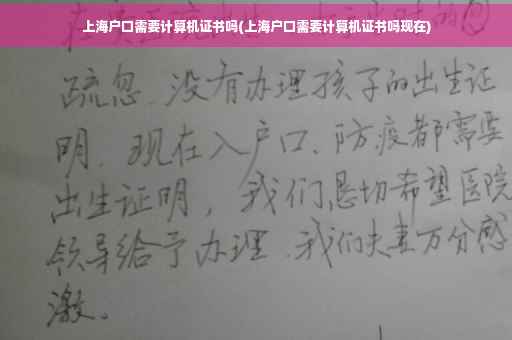 上海户口需要计算机证书吗(上海户口需要计算机证书吗现在)
疏忽、没有办理孩子的出生证
明、现在入户口、防疫都需要
出生证明，我们恳切希望医院
领导给予办理、我们夫妻万分感
激。